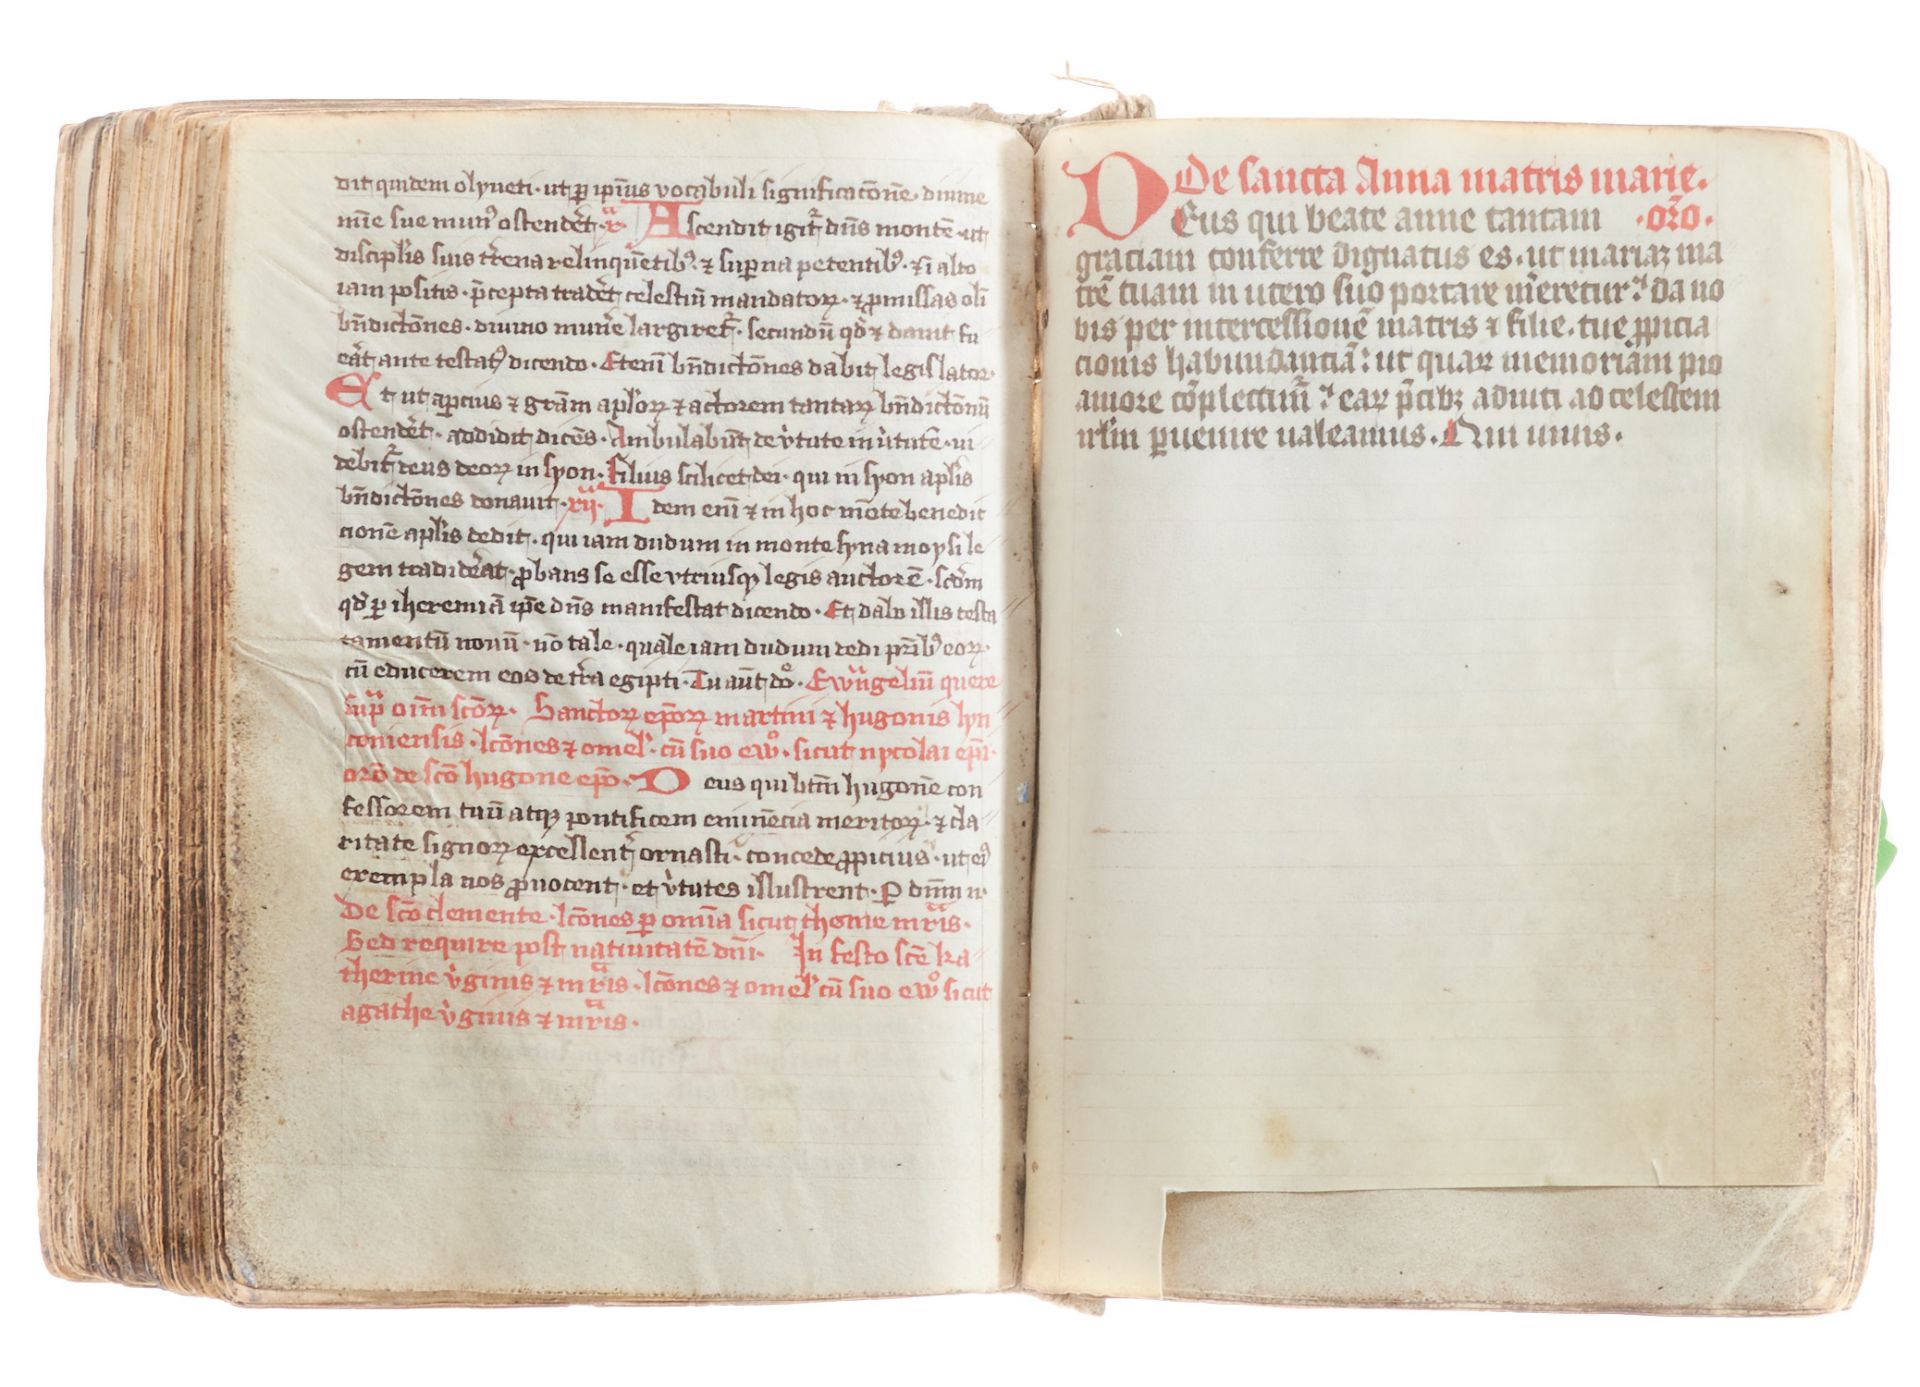 dit quidem olyueti · ut ꝑ ipīus vocabuli significacōne · diuine
mīe sue mun᷒ ostendēt · x · Ascendit igit᷑ dn̄s montē · ut
disciplīs suis t̄rena relinquētib᷒ · ⁊ suꝑna petentib᷒ · ⁊ ī alto
iam positis · p̄cepta tradēt celestiū mandatoꝝ · ⁊ ꝓmissas oli
bn̄dictōnes · diuino mun̄e largiret᷑ · secundū qđ ⁊ dauit fu
eāt ante testat᷒ dicendo · Etenī bn̄dictōnes dabit legislator ·
Et ut aꝑcius ⁊ grām aplōꝝ ⁊ actorem tantaꝝ bn̄dictōnū
ostendēt · addidit dicēs · Ambulabūt de v̄tute in v̄tutē · ui
debit᷑ deus deoꝝ in syon · filius scilicet dei · qui in syon aplīs
bn̄dictōnes donauit · xii · Idem enī ⁊ in hoc mōte benedic
cionē aplīs dedit · qui iam dudum in monte syna moysi le
gem tradidāt · ꝓbans se esse vtriusqꝫ legis auctorē · scđm
qđ ꝑ iheremiā ip̄e dn̄s manifestat dicendo · Et dabo illis testa
tamentū nouū · nō tale · quale iam dudum dedi p̄rib᷒ eoꝝ ·
cū educerem eos de t̄ra egipti · Tu aūt dō · Ewangeliū quere
sup̄ oīm scōꝝ · Sanctoꝝ ep̄oꝝ martini ⁊ hugonis lyn
coniensis · lcōnes ⁊ omel᷒ · cū suo ewō · sicut nycolai ep̄i ·
orō de scō hugone ep̄o · Deus qui btm̄ hugonē con
fessorem tuū atqꝫ pontificem eminēcia meritoꝝ · ⁊ cla
ritate signoꝝ excellent̄ ornasti · concede ꝓpicius · ut ei᷒
exempla nos ꝓuocent · et v̄tutes illustrent · P dn̄m n̄ ·
De scō clemente · lcōnes ꝑ omīa sicut thome mr̄is ·
Sed require post natiuitatē dn̄i · In festo scē ka
therine v̄ginis ⁊ mr̄is · lcōnes ⁊ omel᷒ cū suo ewō sicut
agathe v̄ginis ⁊ mr̄is ·
De sancta Anna matris marie ·
Deus qui beate anne tantam · orō ·
graciam conferre dignatus es · ut mariaꝫ ma
trē tuam in utero suo portare m̄eretur : da no
bis per intercessionē matris ⁊ filie · tue ꝓpicia
cionis habundanciā : ut quaꝝ memoriām pio
amore cōplectim᷑ : eaꝝ p̄cibꝫ adiuti ad celestem
irlm̄ ꝑuenire ualeamus · Qui uiuis ·